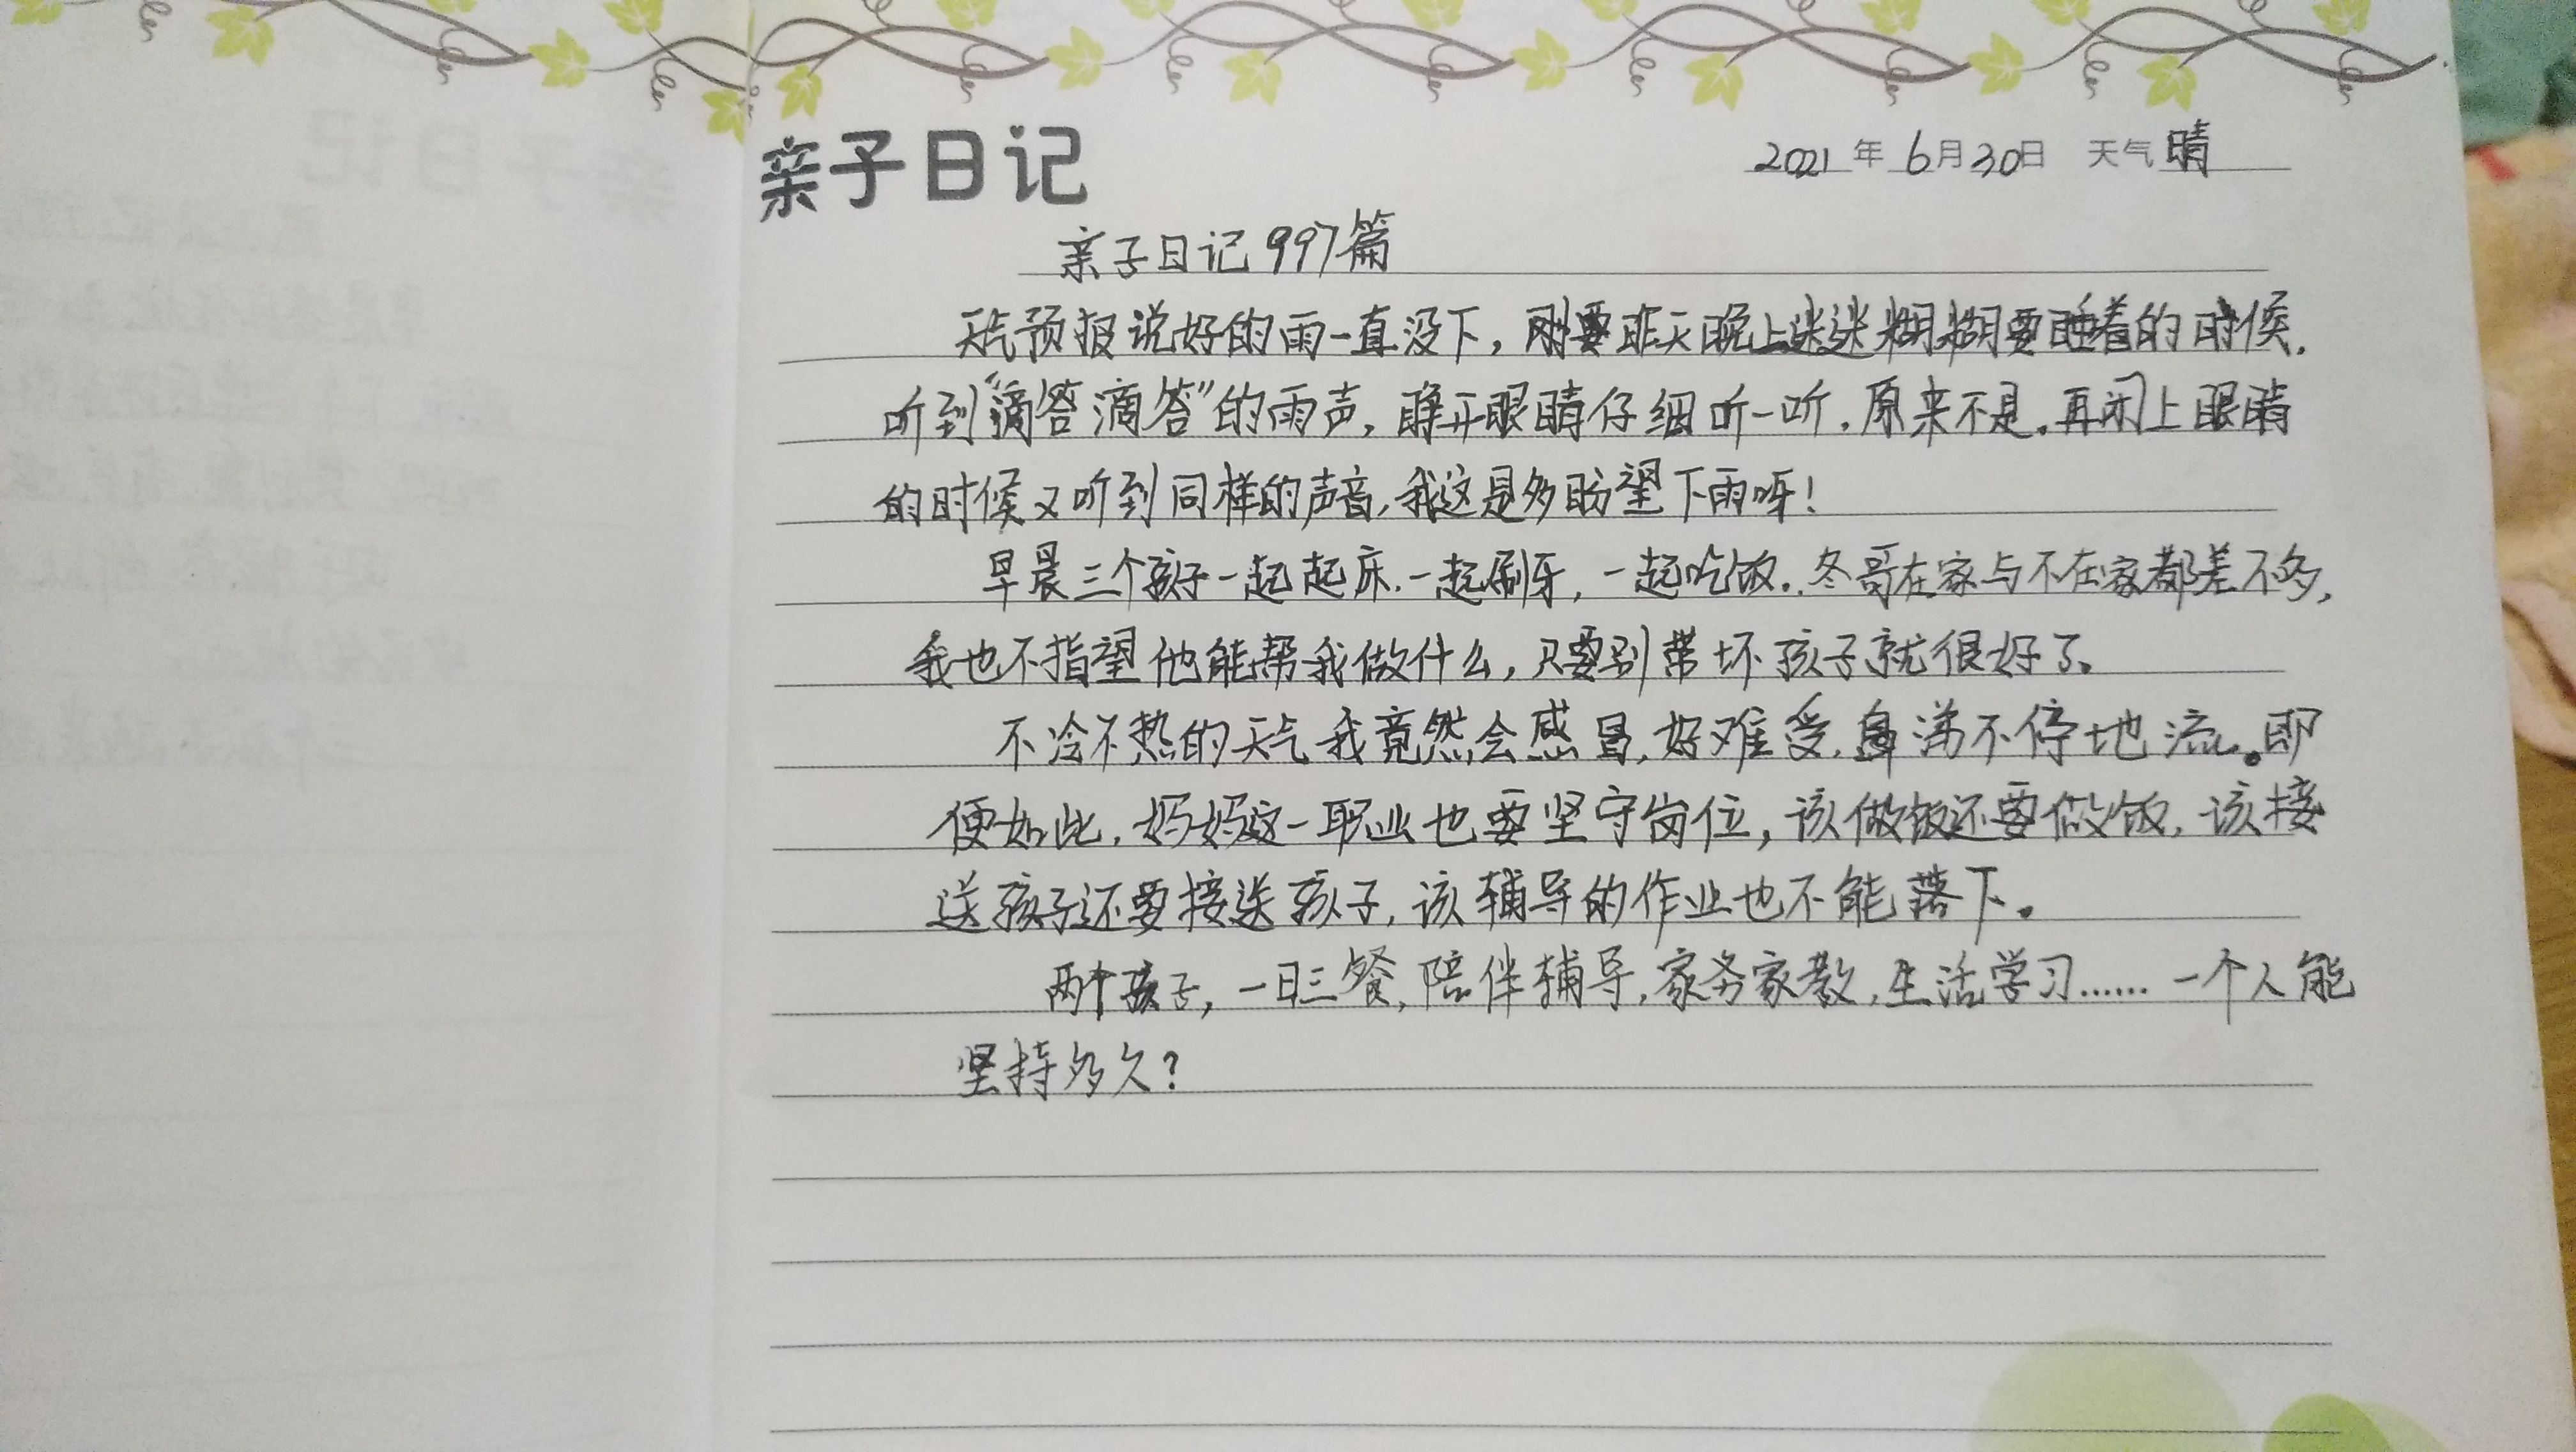 亲子日记
2021年6月30日 天气晴
亲子日记997篇
天气预报说好的雨一直没下，刚要昨天晚上迷迷糊糊要睡着的时候，
听到“滴答滴答”的雨声，睁开眼睛仔细听一听，原来不是。再闭上眼睛
的时候又听到同样的声音，我这是多盼望下雨呀！
早晨三个孩子一起起床，一起刷牙，一起吃饭。冬哥在家与不在家都差不多，
我也不指望他能帮我做什么，只要别带坏孩子就很好了。
不冷不热的天气我竟然会感冒，好难受，鼻涕不停地流。即
便如此，妈妈这一职业也要坚守岗位，该做饭还要做饭，该接
送孩子还要接送孩子，该辅导的作业也不能落下。
两个孩子，一日三餐，陪伴辅导，家务家教，生活学习……一个人能
坚持多久？